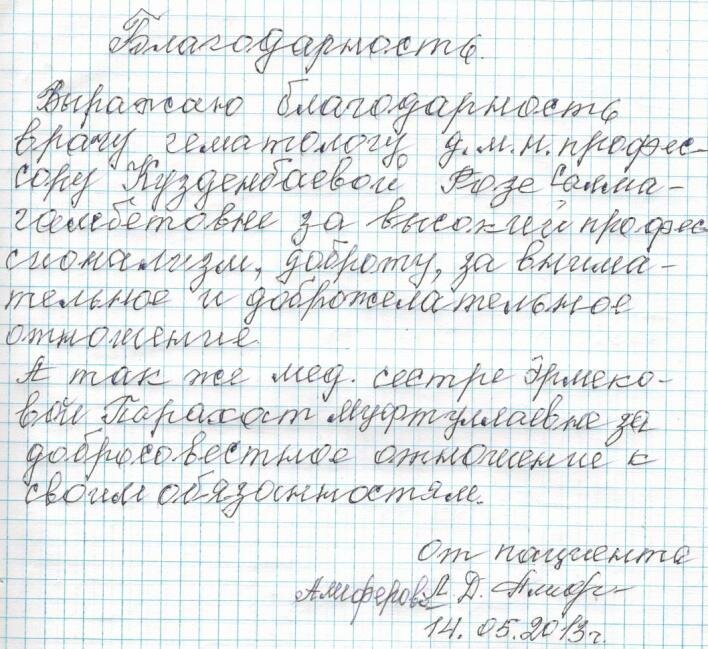 Благодарность.
Выражаю благодарность
врачу гематологу д.м.н. профес-
сору Кузденбаевой Розе Салма-
гамбетовне за высокий профес
сионализм, доброту, за внима-
тельное и доброжелательное
отношение.
А так же мед. сестре Эрмеко-
вой Парахат Муфтуллаевне за
добросовестное отношение к
своим обязанностям.
от пациента
Алиферова Л. Д.
14.05.2013г.